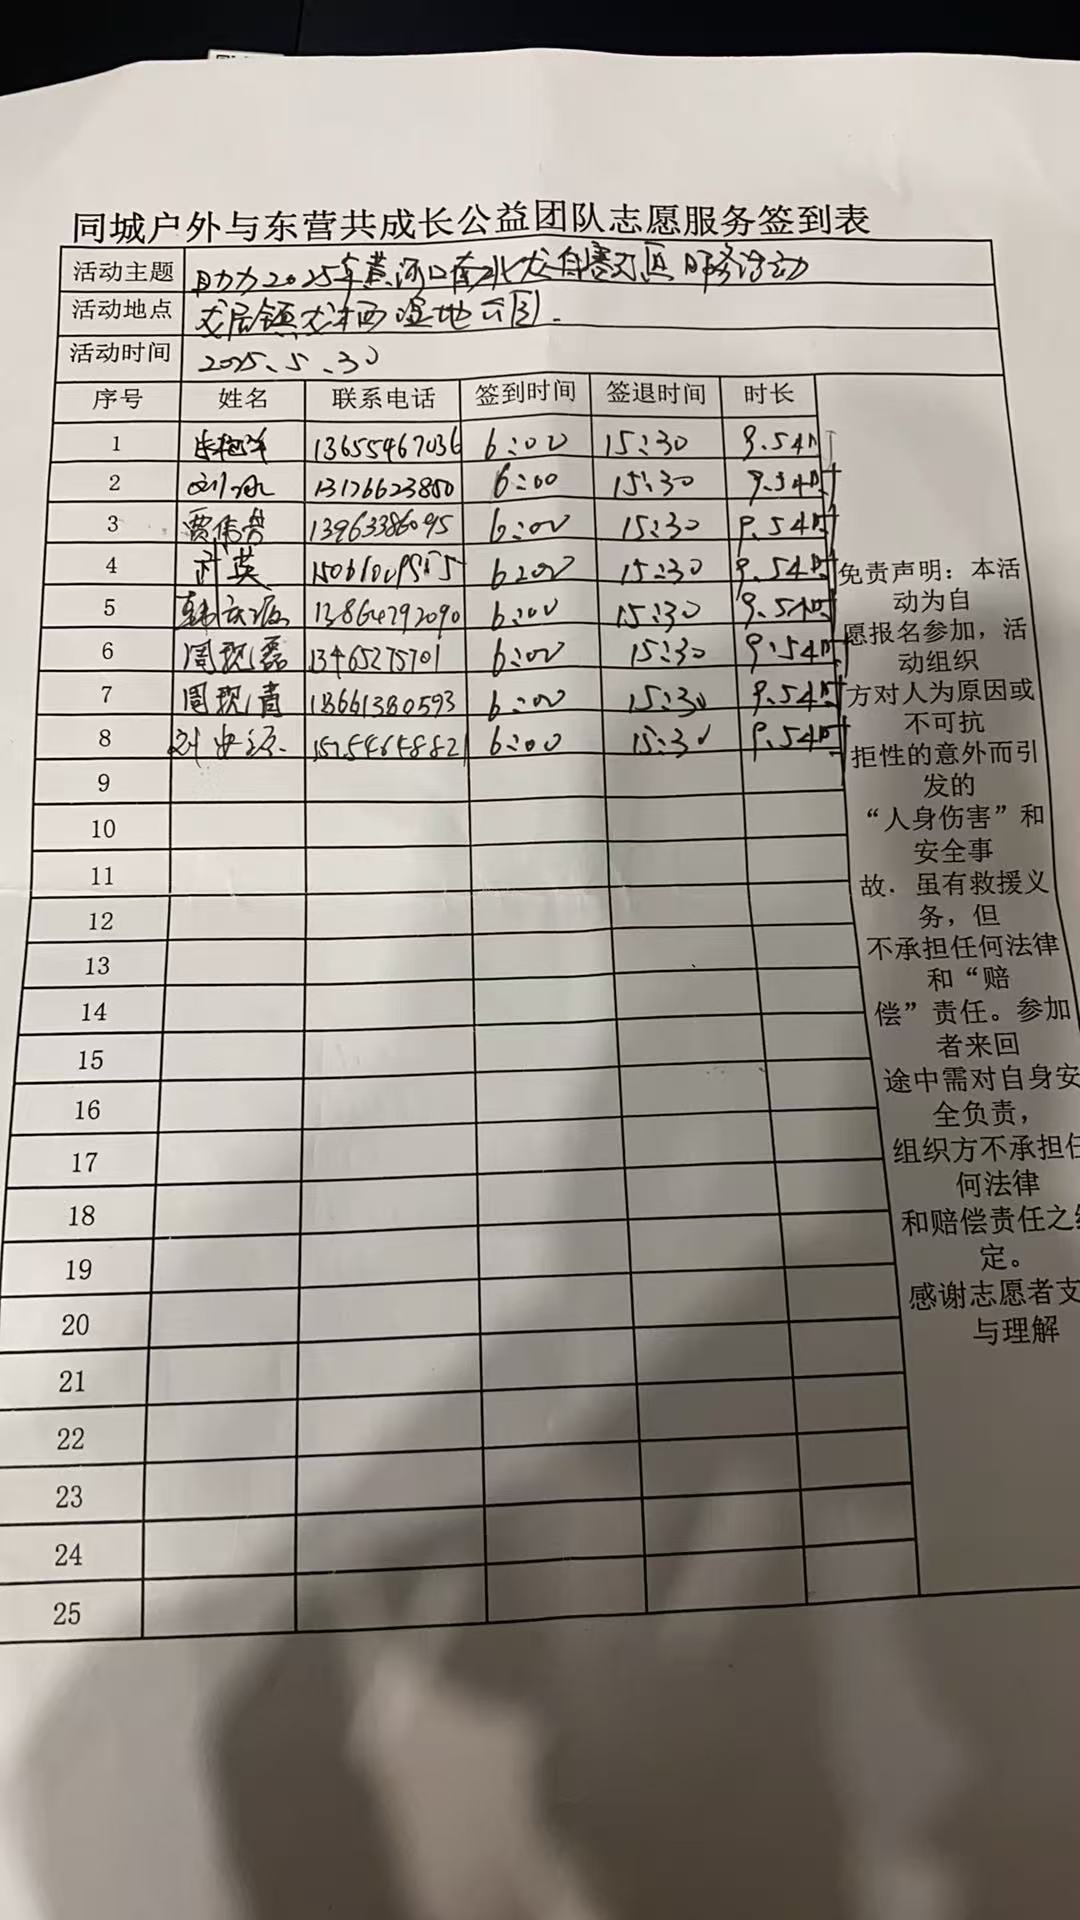 同城户外与东营共成长公益团队志愿服务签到表
活动主题 助力2025年黄河口 龙 赛 区服务活动
活动地点 龙居镇龙栖湿地公园.
活动时间 2025、5、30
序号 姓名 联系电话 签到时间 签退时间 时长
1 13655467036 6:00 15:30 9.5小时
2 刘冰 13176623850 6:00 15:30 9.5小时
3 贾伟 13963386095 6:00 15:30 9.5小时
4 英 6:00 15:30 9.5小时
5 韩 13864792090 6:00 15:30 9.5小时
6 周现磊 13465275701 6:00 15:30 9.5小时
7 周现青 18661380593 6:00 15:30 9.5小时
8 刘 15254658821 6:00 15:30 9.5小时
9
10
11
12
13
14
15
16
17
18
19
20
21
22
23
24
25
免责声明：本活
动为自
愿报名参加，活
动组织
方对人为原因或
不可抗
拒性的意外而引
发的
“人身伤害”和
安全事
故．虽有救援义
务，但
不承担任何法律
和“赔
偿”责任。参加
者来回
途中需对自身安
全负责，
组织方不承担任
何法律
和赔偿责任之
定。
感谢志愿者支
与理解